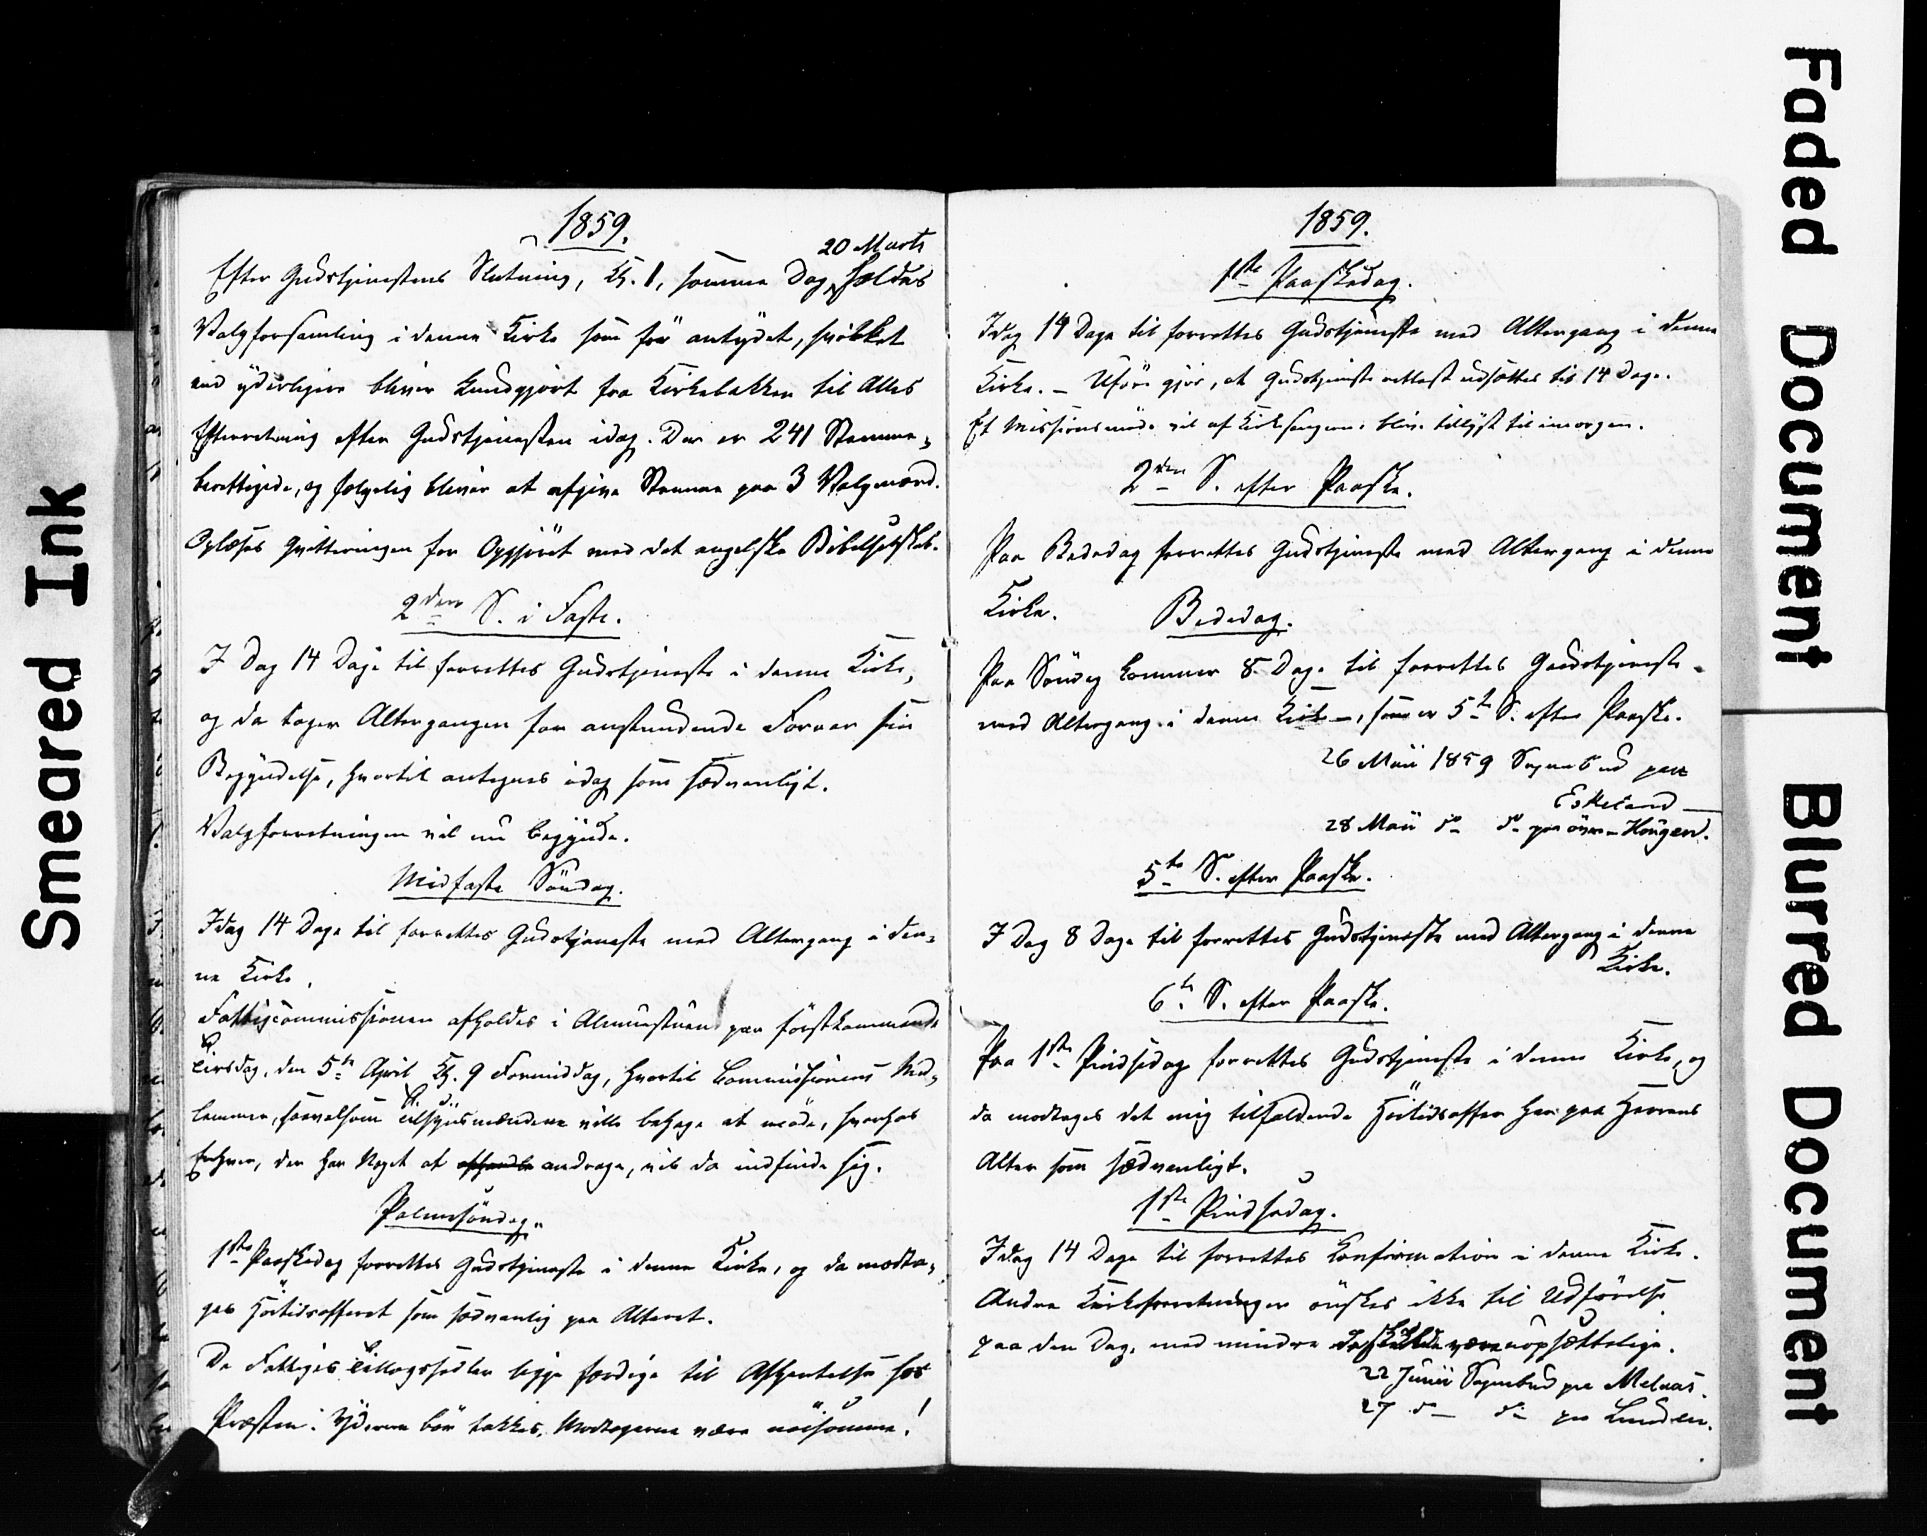 Smeared Ink
1859.
20 Marts
Efter Gudstjenestens Slutning, Kl. 1, samme Dag holdes
Valgforsamling i denne Kirke som før antydet, hvilket
end yderligere bliver kundgjort fra Kirkebakken til Alles
Efterretning efter Gudstjenesten idag. Der er 241 Stemme-
berettigede, og følgelig bliver at afgive Stemme paa 3 Valgmænd.
Oplæses Qvitteringen for Opgjøret med det engelske Bibelselskab.
2den S. i Faste.
I Dag 14 Dage til forrettes Gudstjeneste i denne Kirke,
og da tager Altergangen for anstundende Foraar sin
Begyndelse, hvortil antegnes idag som sædvanligt.
Valgforretningen vil nu begynde.
Midfaste Söndag.
Idag 14 Dage til forrettes Gudstjeneste med Altergang i den-
ne Kirke.
Fattigcommissionen afholdes i Almuestuen paa förstkommende
Tirsdag, den 5te April Kl. 9 Formiddag, hvortil Commissionens Med-
lemmer, saavelsom Tilsynsmændene ville behage at möde, hvorhos
Enhver, der har Noget at afhandle andrage, vil da indfinde sig.
Palmesöndag.
1ste Paaskedag forrettes Gudstjeneste i denne Kirke, og da modta-
ges Höitidsofferet som sædvanlig paa Alteret.
De Fattiges Tillægssedler ligge færdige til Afhentelse hos
Præsten. Yderne bör takkes, Modtagerne være nöisomme!
1859.
1ste Paaskedag.
Idag 14 Dage til forrettes Gudstjeneste med Altergang i denne
Kirke. – Uföre gjör, at Gudstjeneste rettest udsættes til 14 Dage.
Et Missionsmöde vil af Kirkesangeren blive tillyst til imorgen.
2den S. efter Paaske.
Paa Bededag forrettes Gudstjeneste med Altergang i denne
Kirke.
Bededag.
Paa Söndag kommer 8 Dage til forrettes Gudstjeneste
med Altergang i denne Kirke –, som er 5te S. efter Paaske.
26 Maii 1859 Sognebud paa
Eskeland –
28 Maii do do paa övre Hougen.
5te S. efter Paaske.
I Dag 8 Dage til forrettes Gudstjeneste med Altergang i denne
Kirke.
6te S. efter Paaske.
Paa 1ste Pindsedag forrettes Gudstjeneste i denne Kirke, og
da modtages det mig tilfaldende Höitidsoffer her paa Herrens
Alter som sædvanligt.
1ste Pindsedag.
Idag 14 Dage til forrettes Confirmation i denne Kirke.
Andre Kirkeforretninger önskes ikke til Udförelse
paa den Dag, med mindre de skulde være uopsættelige.
22 Junii Sognebud paa Melaas.
27 do do paa Lunden.
Faded Document
Blurred Document